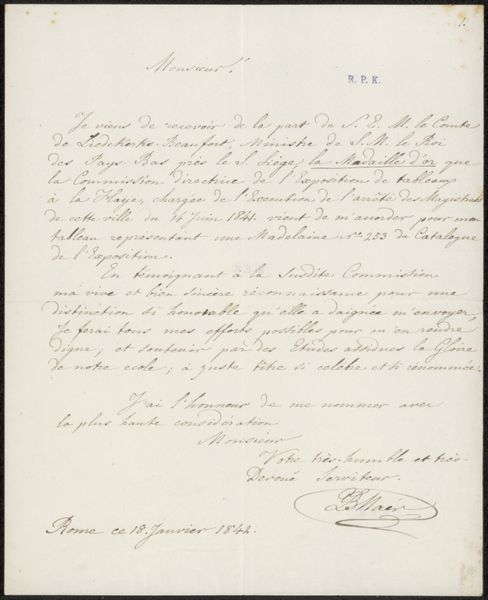 1.
Monsieur.
R. P. K.
Je viens de recevoir de la part de S. E. M. le Comte
de Liedekerke Beaufort, Ministre de S. M. le Roi
des Pays Bas près le S. Siège, la Medaille d'or que
la Commission directrice de l'Exposition de tableaux
à la Haye, chargée de l'Execution de l'arrêté des Magistrats
de cette ville du 4 Juin 1841. vient de m'accorder pour mon
tableau représentant une Madelaine No. 253 du Catalogue
de l'Exposition.
En temoignant à la Susdite Commission
ma vive et bien sincère reconnaissance pour une
distinction si honorable qu'elle a daignée m'envoyer,
Je ferai tous mes efforts possibles pour m'en rendre
digne, et soutenir par des Etudes assidues la Gloire
de notre ecole, à juste titre si celebre et si renommée.
J'ai l'honneur de me nommer avec
la plus haute considération
Monsieur
Votre très-humble et très-
Devoué Serviteur.
Rome ce 18. Janvier 1842.